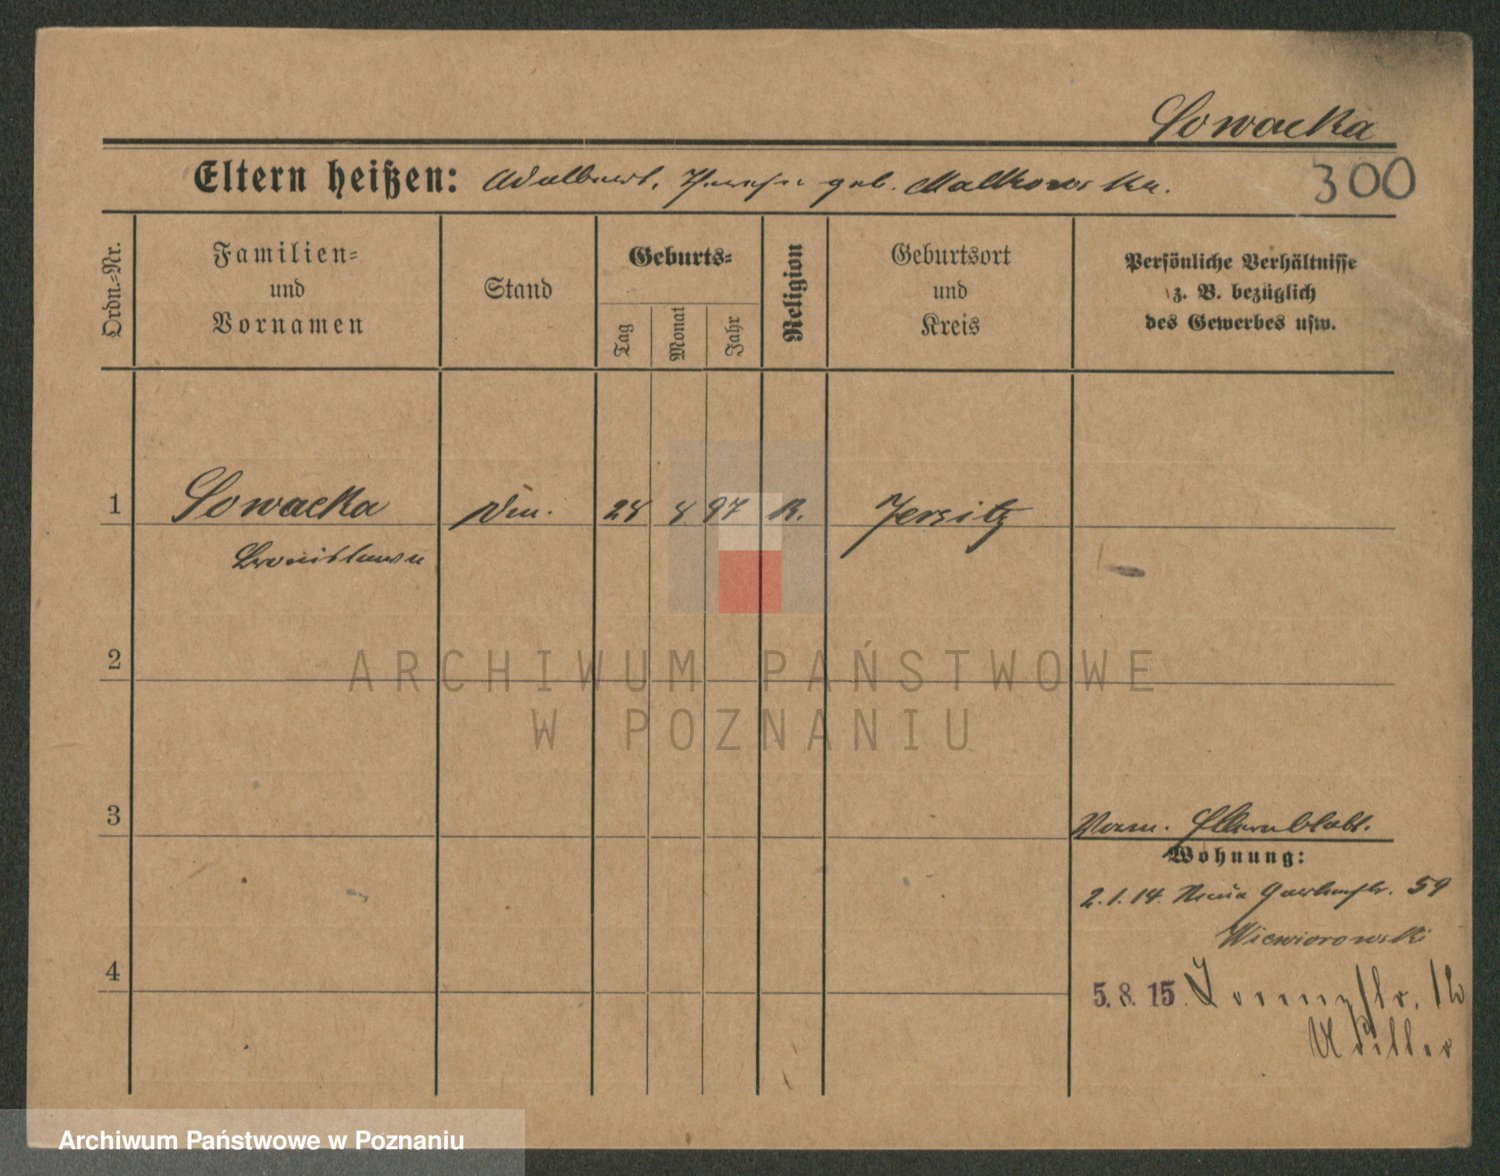 Sowacka
Eltern heißen: Adalbert, geb. Malkowska.
300
Ordn.-Nr.
Familien- und Vornamen
Stand
Geburts-
Tag
Monat
Jahr
Religion
Geburtsort und Kreis
Persönliche Verhältnisse
z. B. bezüglich
des Gewerbes usw.
1 Sowacka 28 8 97 K. Jersitz
Bronislawa
2
3
Vorm. Elternblatt.
Wohnung:
2.1.14. Neue Gartenstr. 59
Wiewiorowski
4
5. 8. 15. 12
ARCHIWUM PAŃSTWOWE
W POZNANIU
Archiwum Państwowe w Poznaniu